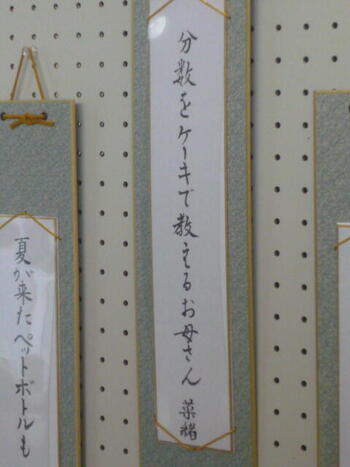 分数をケーキで教えるお母さん 菜緒
夏が来たペットボトルも